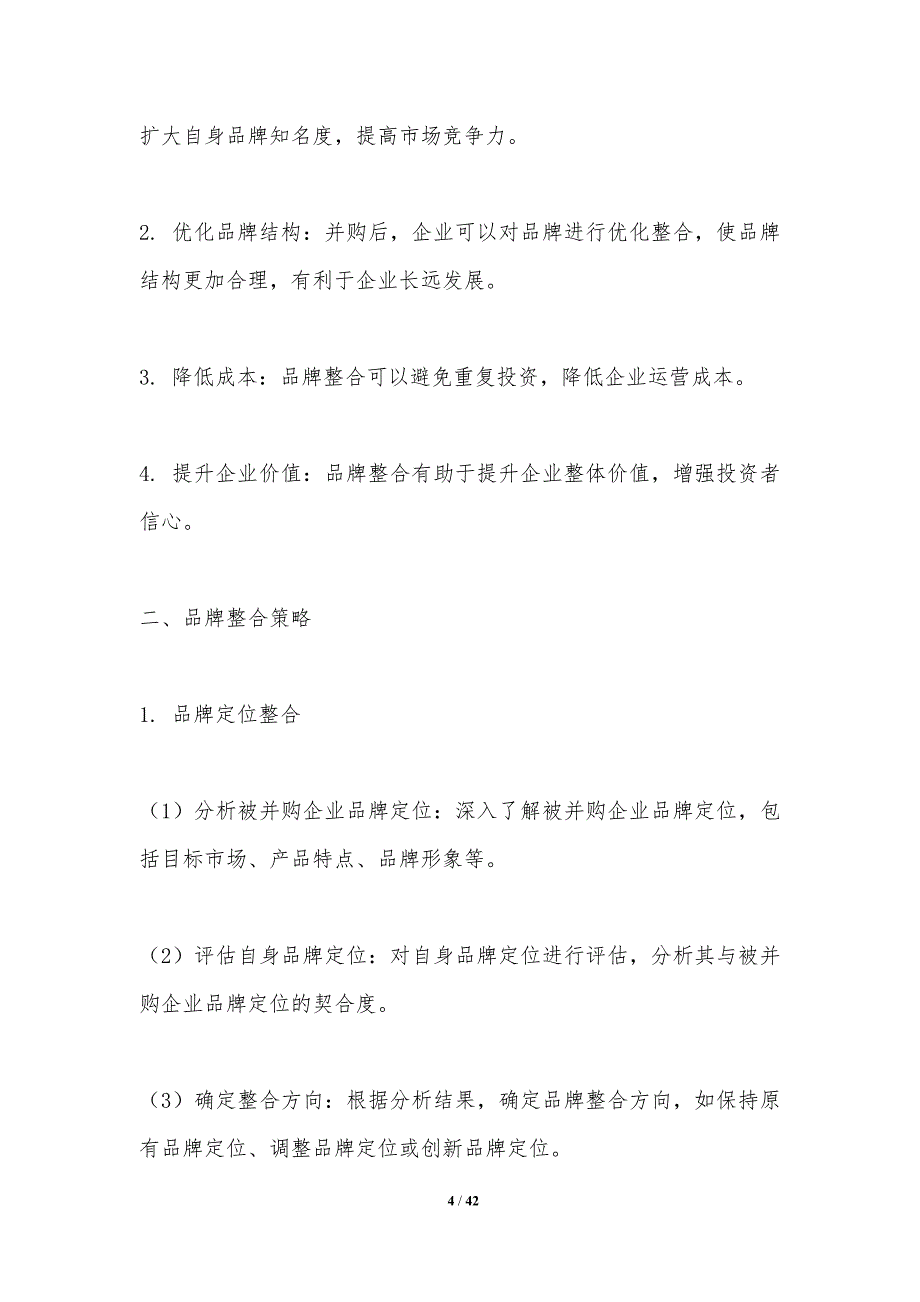 扩大自身品牌知名度，提高市场竞争力。
2. 优化品牌结构：并购后，企业可以对品牌进行优化整合，使品牌
结构更加合理，有利于企业长远发展。
3. 降低成本：品牌整合可以避免重复投资，降低企业运营成本。
4. 提升企业价值：品牌整合有助于提升企业整体价值，增强投资者
信心。
二、品牌整合策略
1. 品牌定位整合
（1）分析被并购企业品牌定位：深入了解被并购企业品牌定位，包
括目标市场、产品特点、品牌形象等。
（2）评估自身品牌定位：对自身品牌定位进行评估，分析其与被并
购企业品牌定位的契合度。
（3）确定整合方向：根据分析结果，确定品牌整合方向，如保持原
有品牌定位、调整品牌定位或创新品牌定位。
4 / 42